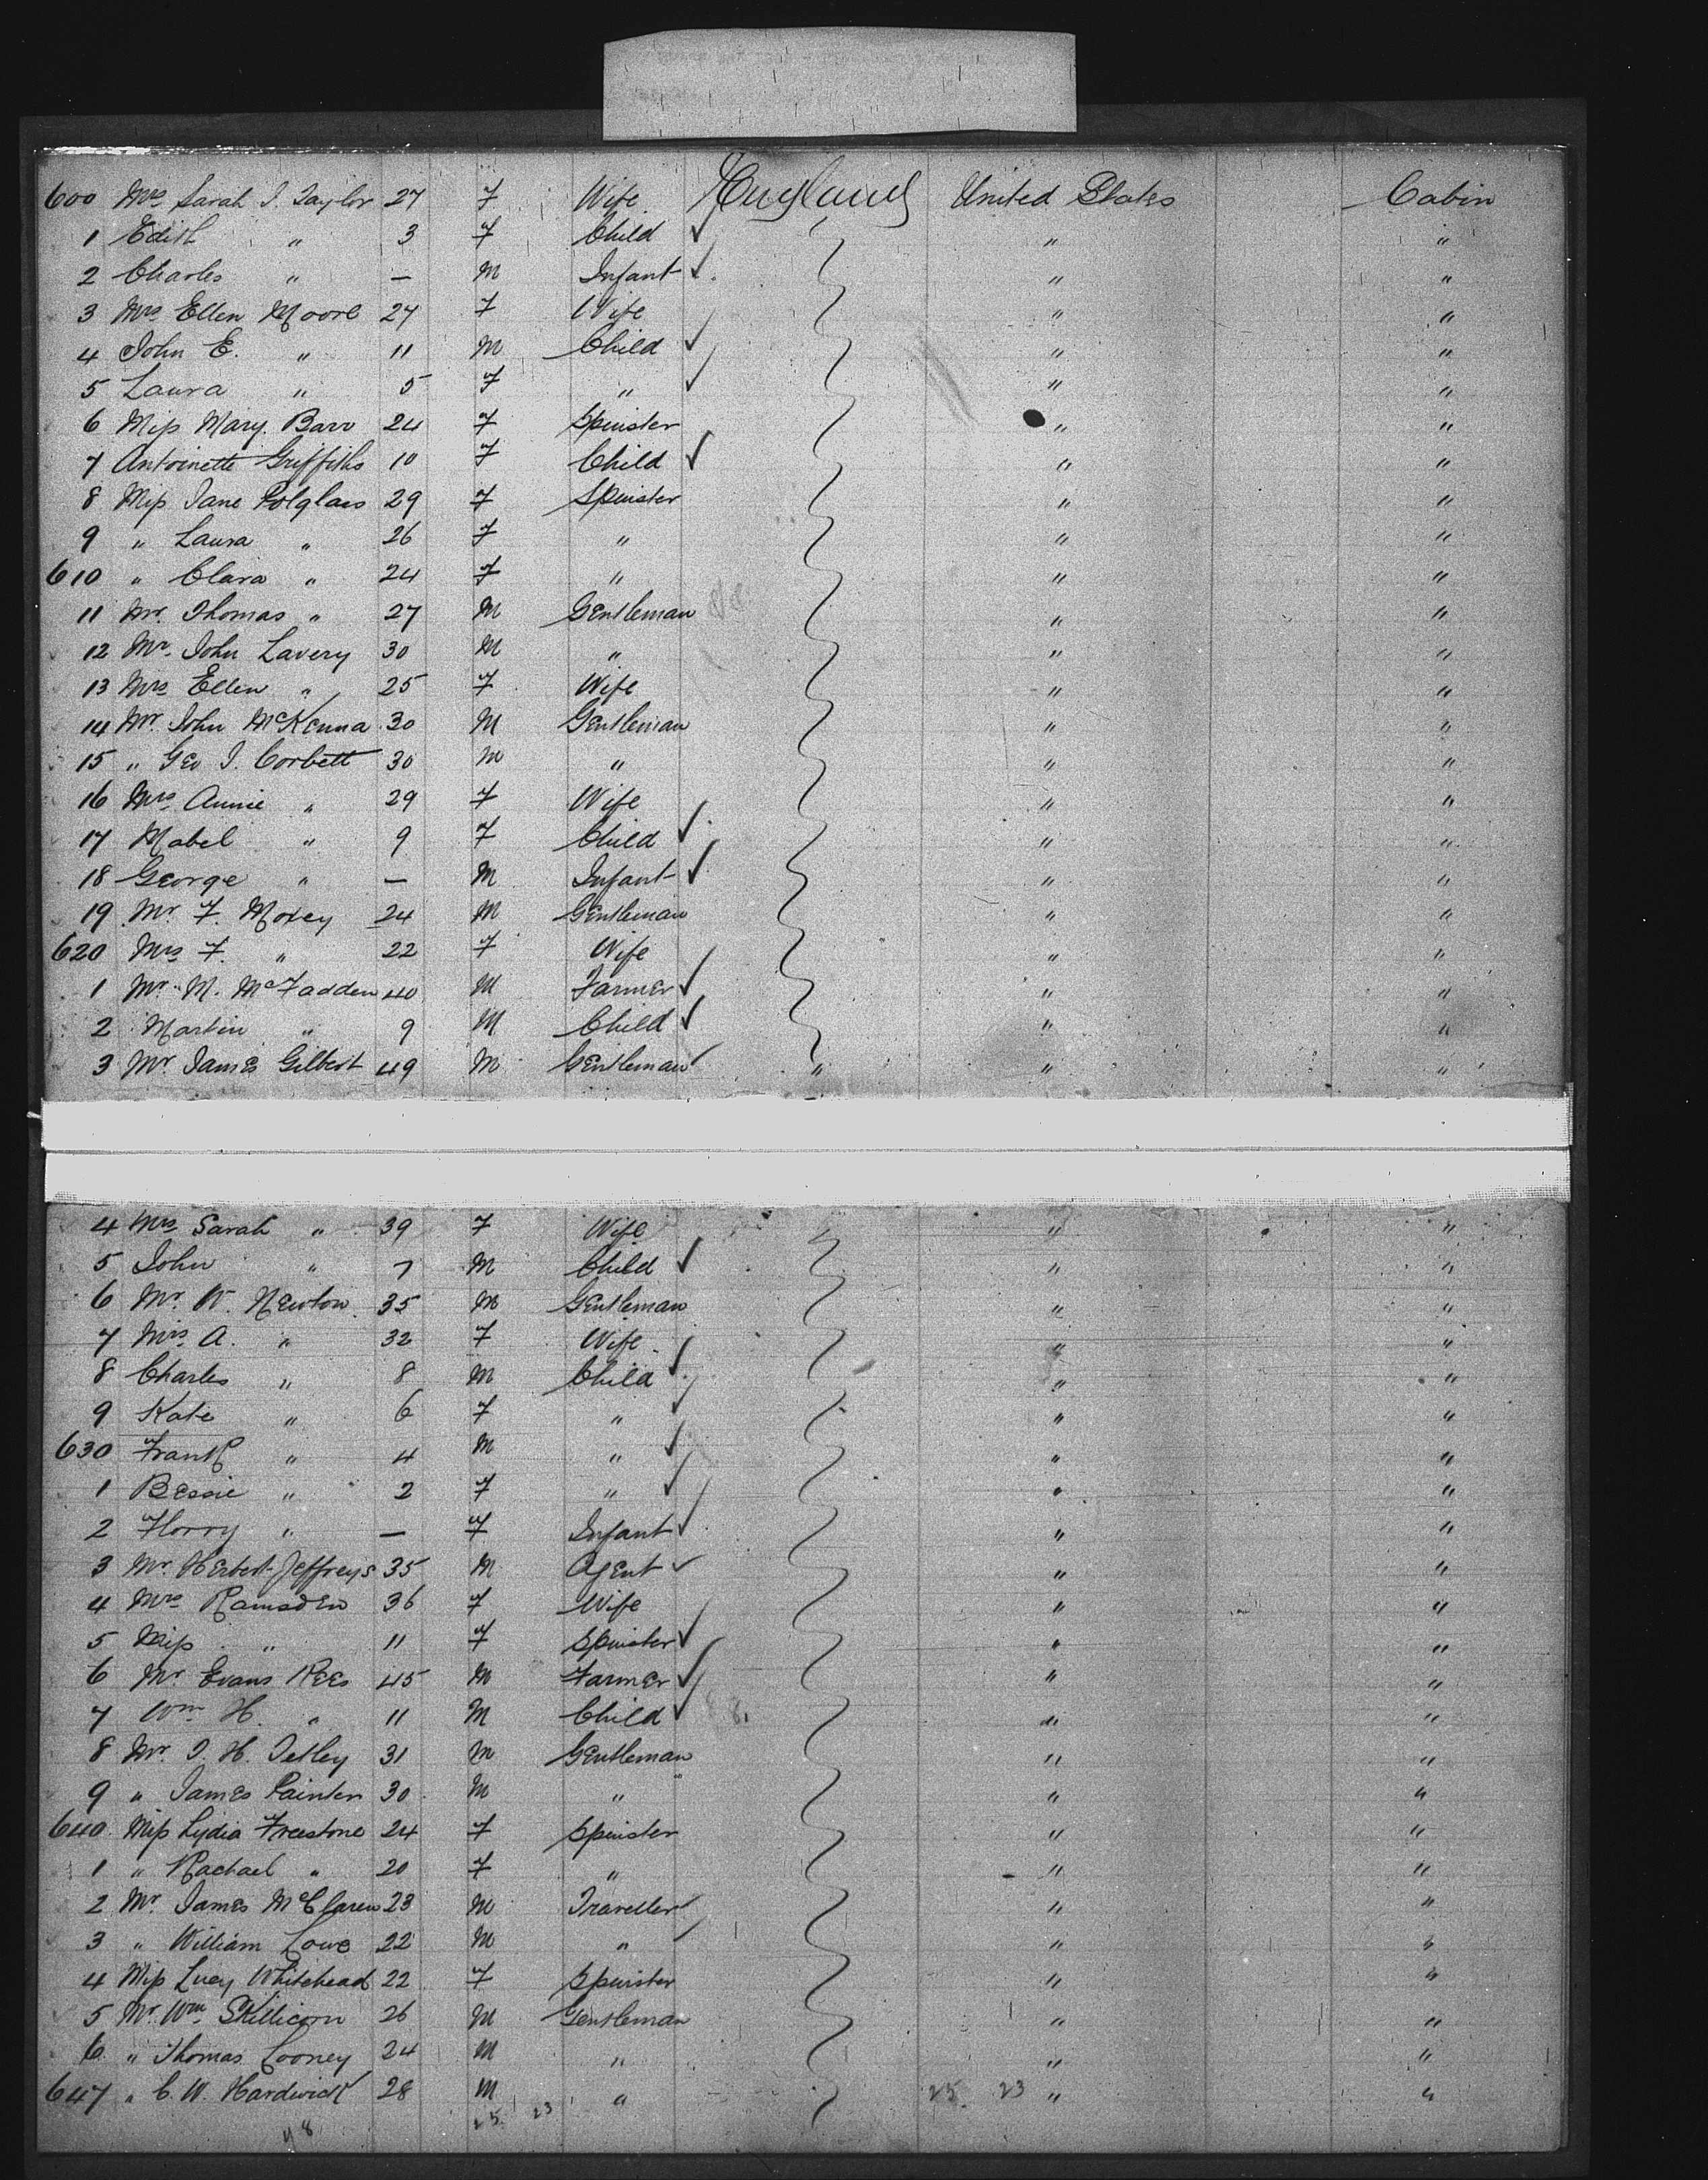 600 Mrs Sarah J. Taylor 27 F Wife England United States Cabin
1 Edith " 3 F Child ✓ " "
2 Charles " — M Infant ✓ " "
3 Mrs Ellen Moore 27 F Wife " "
4 John E. " 11 M Child ✓ " "
5 Laura " 5 F " ✓ " "
6 Miss Mary Barr 24 F Spinster " "
7 Antoinette Griffiths 10 F Child ✓ " "
8 Miss Jane Polglass 29 F Spinster " "
9 " Laura " 26 F " " "
610 " Clara " 24 F " " "
11 Mr. Thomas " 27 M Gentleman " "
12 Mr. John Lavery 30 M " " "
13 Mrs Ellen " 25 F Wife " "
14 Mr. John McKenna 30 M Gentleman " "
15 " Geo J. Corbett 30 M " " "
16 Mrs Annie " 29 F Wife " "
17 Mabel " 9 F Child ✓ " "
18 George " — M Infant ✓ " "
19 Mr. F. 24 M Gentleman " "
620 Mrs F. " 22 F Wife " "
1 Mr. M. McFadden 40 M Farmer ✓ " "
2 Martin " 9 M Child ✓ " "
3 Mr. James Gilbert 49 M Gentleman ✓ " " "
4 Mrs Sarah " 39 F Wife " "
5 John " 7 M Child ✓ " "
6 Mr. W. Newton 35 M Gentleman " "
7 Mrs A. " 32 F Wife " "
8 Charles " 8 M Child ✓ " "
9 Kate " 6 F " ✓ " "
630 Frank " 4 M " ✓ " "
1 Bessie " 2 F " ✓ " "
2 " — F Infant ✓ " "
3 Mr. Herbert Jeffreys 35 M Agent ✓ " "
4 Mrs Ramsden 36 F Wife " "
5 Miss " 11 F Spinster ✓ " "
6 Mr. Evans Rees 45 M Farmer ✓ " "
7 Wm H. " 11 M Child ✓ " "
8 Mr. J. H. Tetley 31 M Gentleman " "
9 " James Painter 30 M " " "
640 Miss Lydia Freestone 24 F Spinster " "
1 " Rachael " 20 F " " "
2 Mr. James McClaren 23 M Traveller ✓ " "
3 " William Lowe 22 M " ✓ " "
4 Miss Lucy Whitehead 22 F Spinster " "
5 Mr. Wm Skillicorn 26 M Gentleman " "
6 " Thomas Cooney 24 M " " "
647 " C. W. Hardwick 28 M " 25 23 " "
48 25 23